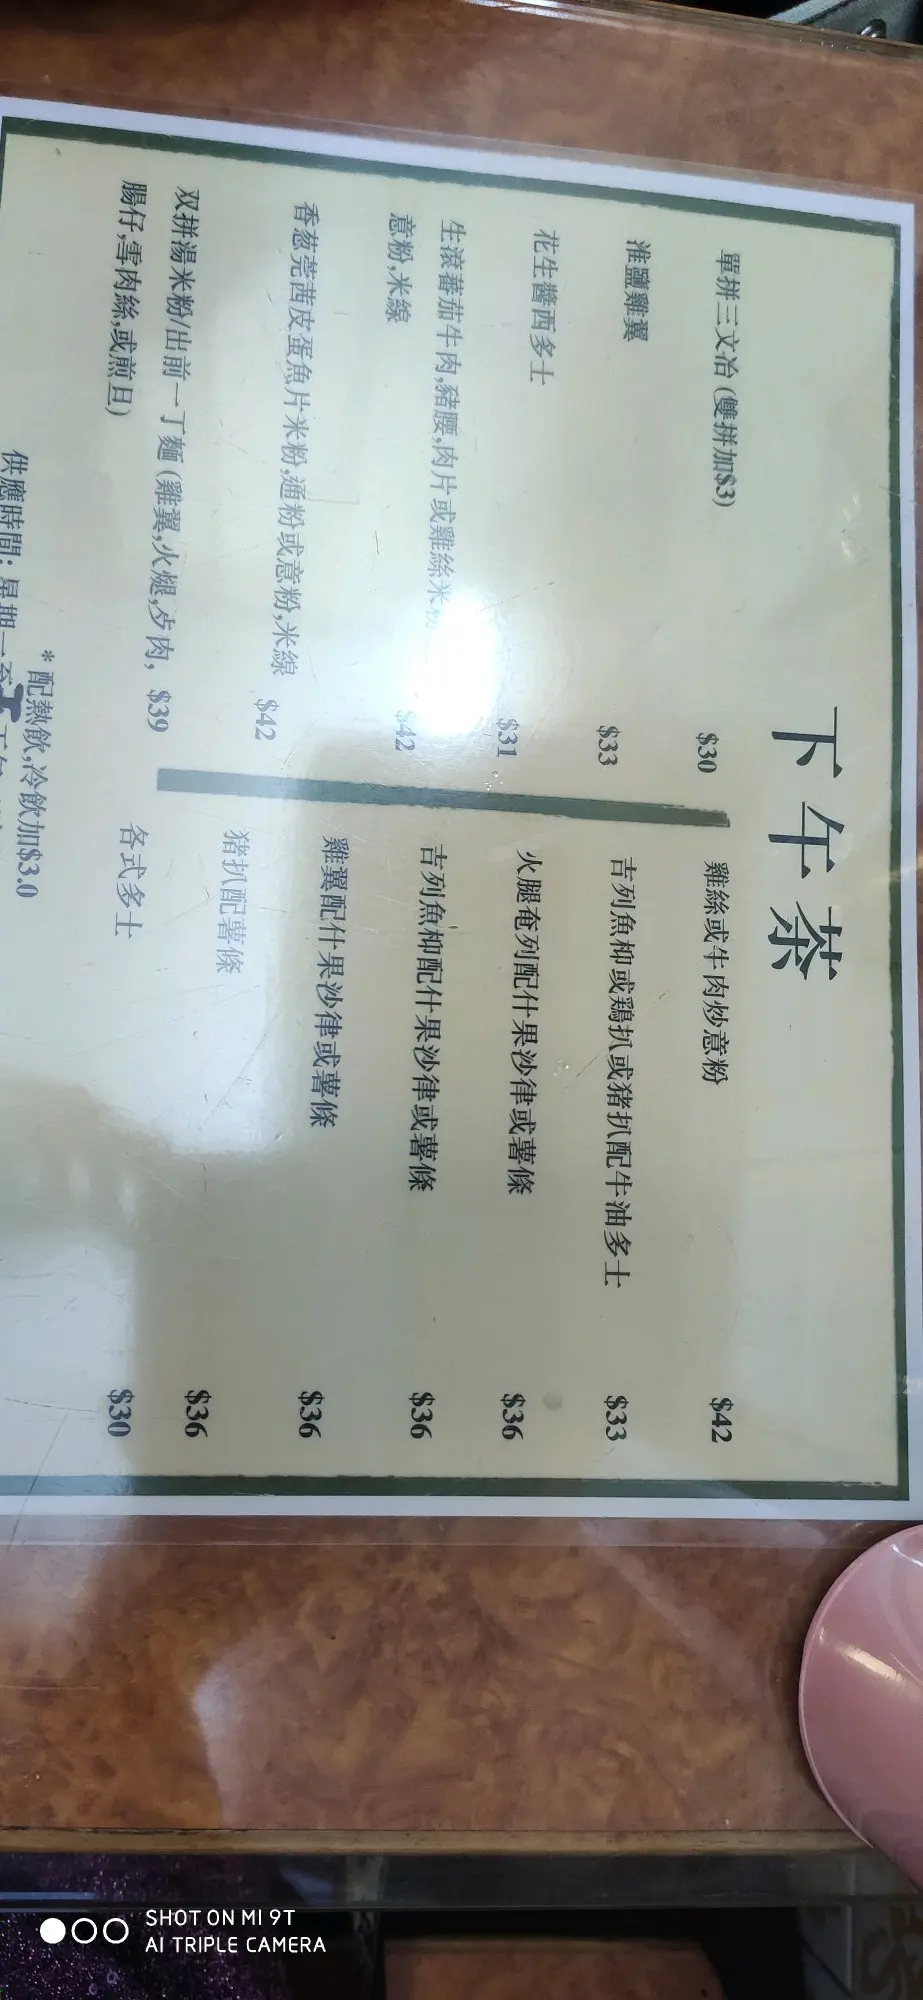 下午茶
單拼三文冶 (雙拼加$3) $30
淮鹽雞翼 $33
花生醬西多士 $31
生滾蕃茄牛肉,豬腰,肉片或雞絲米粉
意粉,米線 $42
香葱莞茜皮蛋魚片米粉,通粉或意粉,米線 $42
双拼湯米粉/出前一丁麵 (雞翼,火腿,歺肉, $39
腸仔,雪肉絲,或煎旦)
雞絲或牛肉炒意粉 $42
吉列魚柳或鷄扒或猪扒配牛油多士 $33
火腿奄列配什果沙律或薯條 $36
吉列魚柳配什果沙律或薯條 $36
雞翼配什果沙律或薯條 $36
猪扒配薯條 $36
各式多士 $30
*配熱飲,冷飲加$3.0
供應時間: 星期一至
SHOT ON MI 9T
AI TRIPLE CAMERA